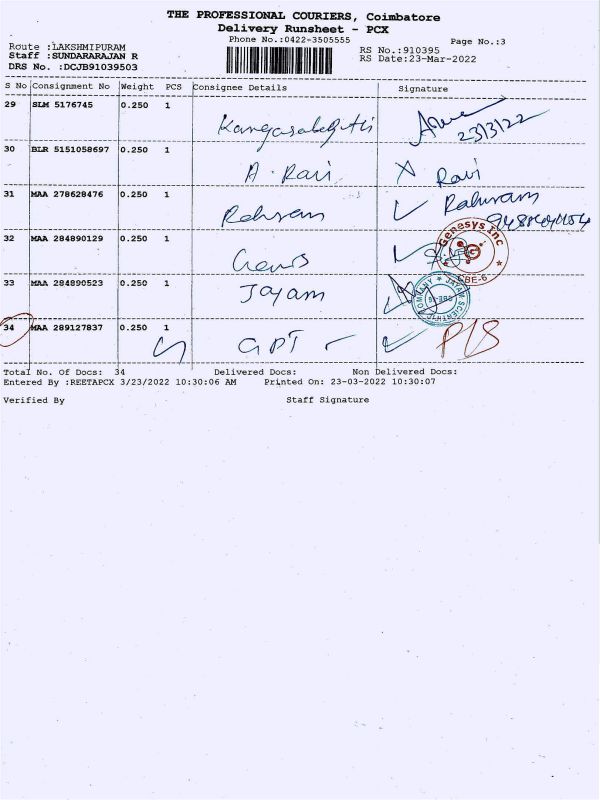 THE PROFESSIONAL COURIERS, Coimbatore
Delivery Runsheet - PCX
Phone No.:0422-3505555
Page No.:3
Route :LAKSHMIPURAM
RS No.:910395
Staff :SUNDARARAJAN R
RS Date:23-Mar-2022
DRS No. :DCJB91039503
S No Consignment No Weight PCS Consignee Details Signature
29 SLM 5176745 0.250 1
23/3/22
30 BLR 5151058697 0.250 1
A. Ravi Ravi
31 MAA 278628476 0.250 1
Rahuram
32 MAA 284890129 0.250 1
Genesys Inc
CBE-6
33 MAA 284890523 0.250 1
Jayam
JAYAM SCIENTIFIC COMPANY
34 MAA 289127837 0.250 1
GPT
Total No. Of Docs: 34 Delivered Docs: Non Delivered Docs:
Entered By :REETAPCX 3/23/2022 10:30:06 AM Printed On: 23-03-2022 10:30:07
Verified By Staff Signature